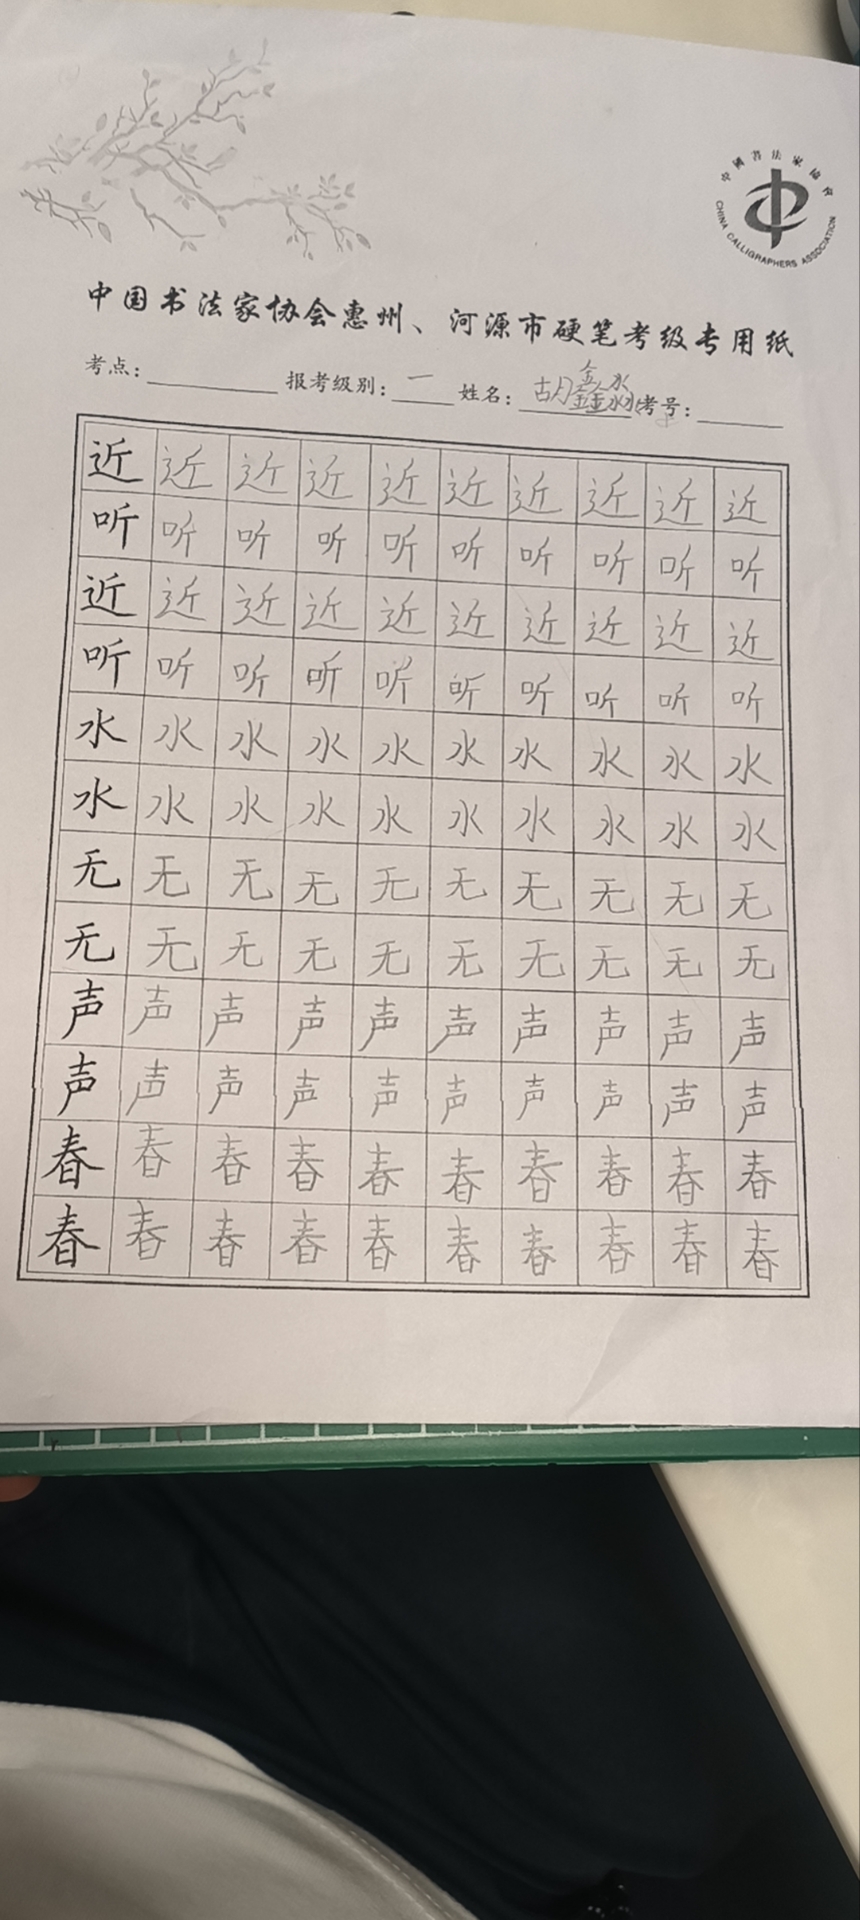 中國書法家協會
CHINA CALLIGRAPHERS ASSOCIATION
中国书法家协会惠州、河源市硬笔考级专用纸
考点： 报考级别：一 姓名：胡鑫淼 考号：
近近近近近近近近近近
听听听听听听听听听听
近近近近近近近近近近
听听听听听听听听听听
水水水水水水水水水水
水水水水水水水水水水
无无无无无无无无无无
无无无无无无无无无无
声声声声声声声声声声
声声声声声声声声声声
春春春春春春春春春春
春春春春春春春春春春